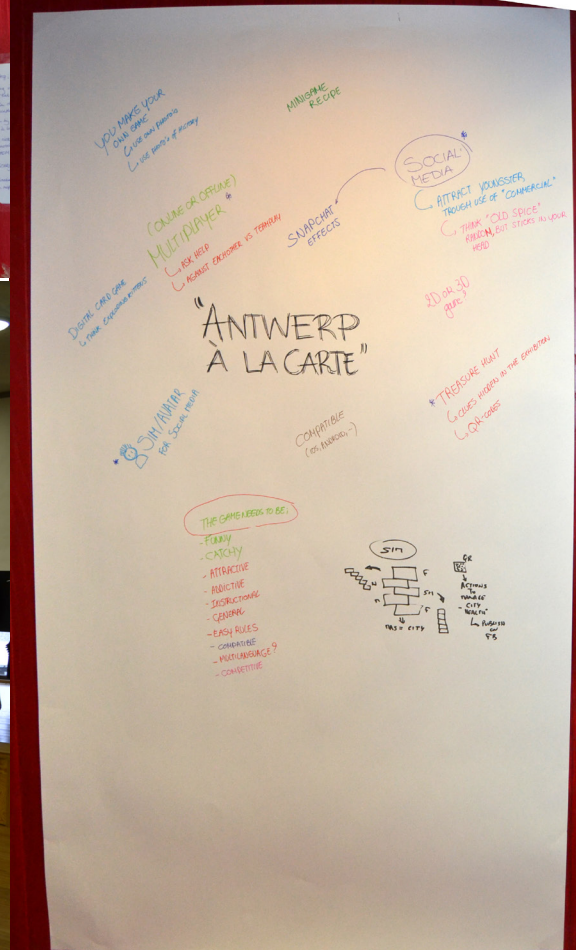 YOU MAKE YOUR
OWN GAME
USE OWN PAINTING
USE PAINTING OF HISTORY
MINIGAME
RECIPE
SOCIAL
MEDIA *
ATTRACT YOUNGSTER,
TROUGH USE OF "COMMERCIAL"
THINK "OLD SPICE"
RANDOM, BUT STICKS IN YOUR
HEAD
SNAPCHAT
EFFECTS
(ONLINE OR OFFLINE)
MULTIPLAYER *
ASK HELP
AGAINST EACHOTHER VS TEAMPLAY
DIGITAL CARD GAME
THINK EXPLODING KITTENS
2D OR 3D
game?
"ANTWERP
À LA CARTE"
* SIM/AVATAR
FOR SOCIAL MEDIA
COMPATIBLE
(IOS, ANDROID, ...)
* TREASURE HUNT
CLUES HIDDEN IN THE EXHIBITION
QR-CODES
THE GAME NEEDS TO BE:
- FUNNY
- CATCHY
- ATTRACTIVE
- ADDICTIVE
- INSTRUCTIONAL
- GENERAL
- EASY RULES
- COMPATIBLE
- MULTILANGUAGE?
- COMPETITIVE
SIM
MAS = CITY
QR
ACTIONS
TO
MANAGE
- CITY
HEALTH
PUBLISH
ON
FB